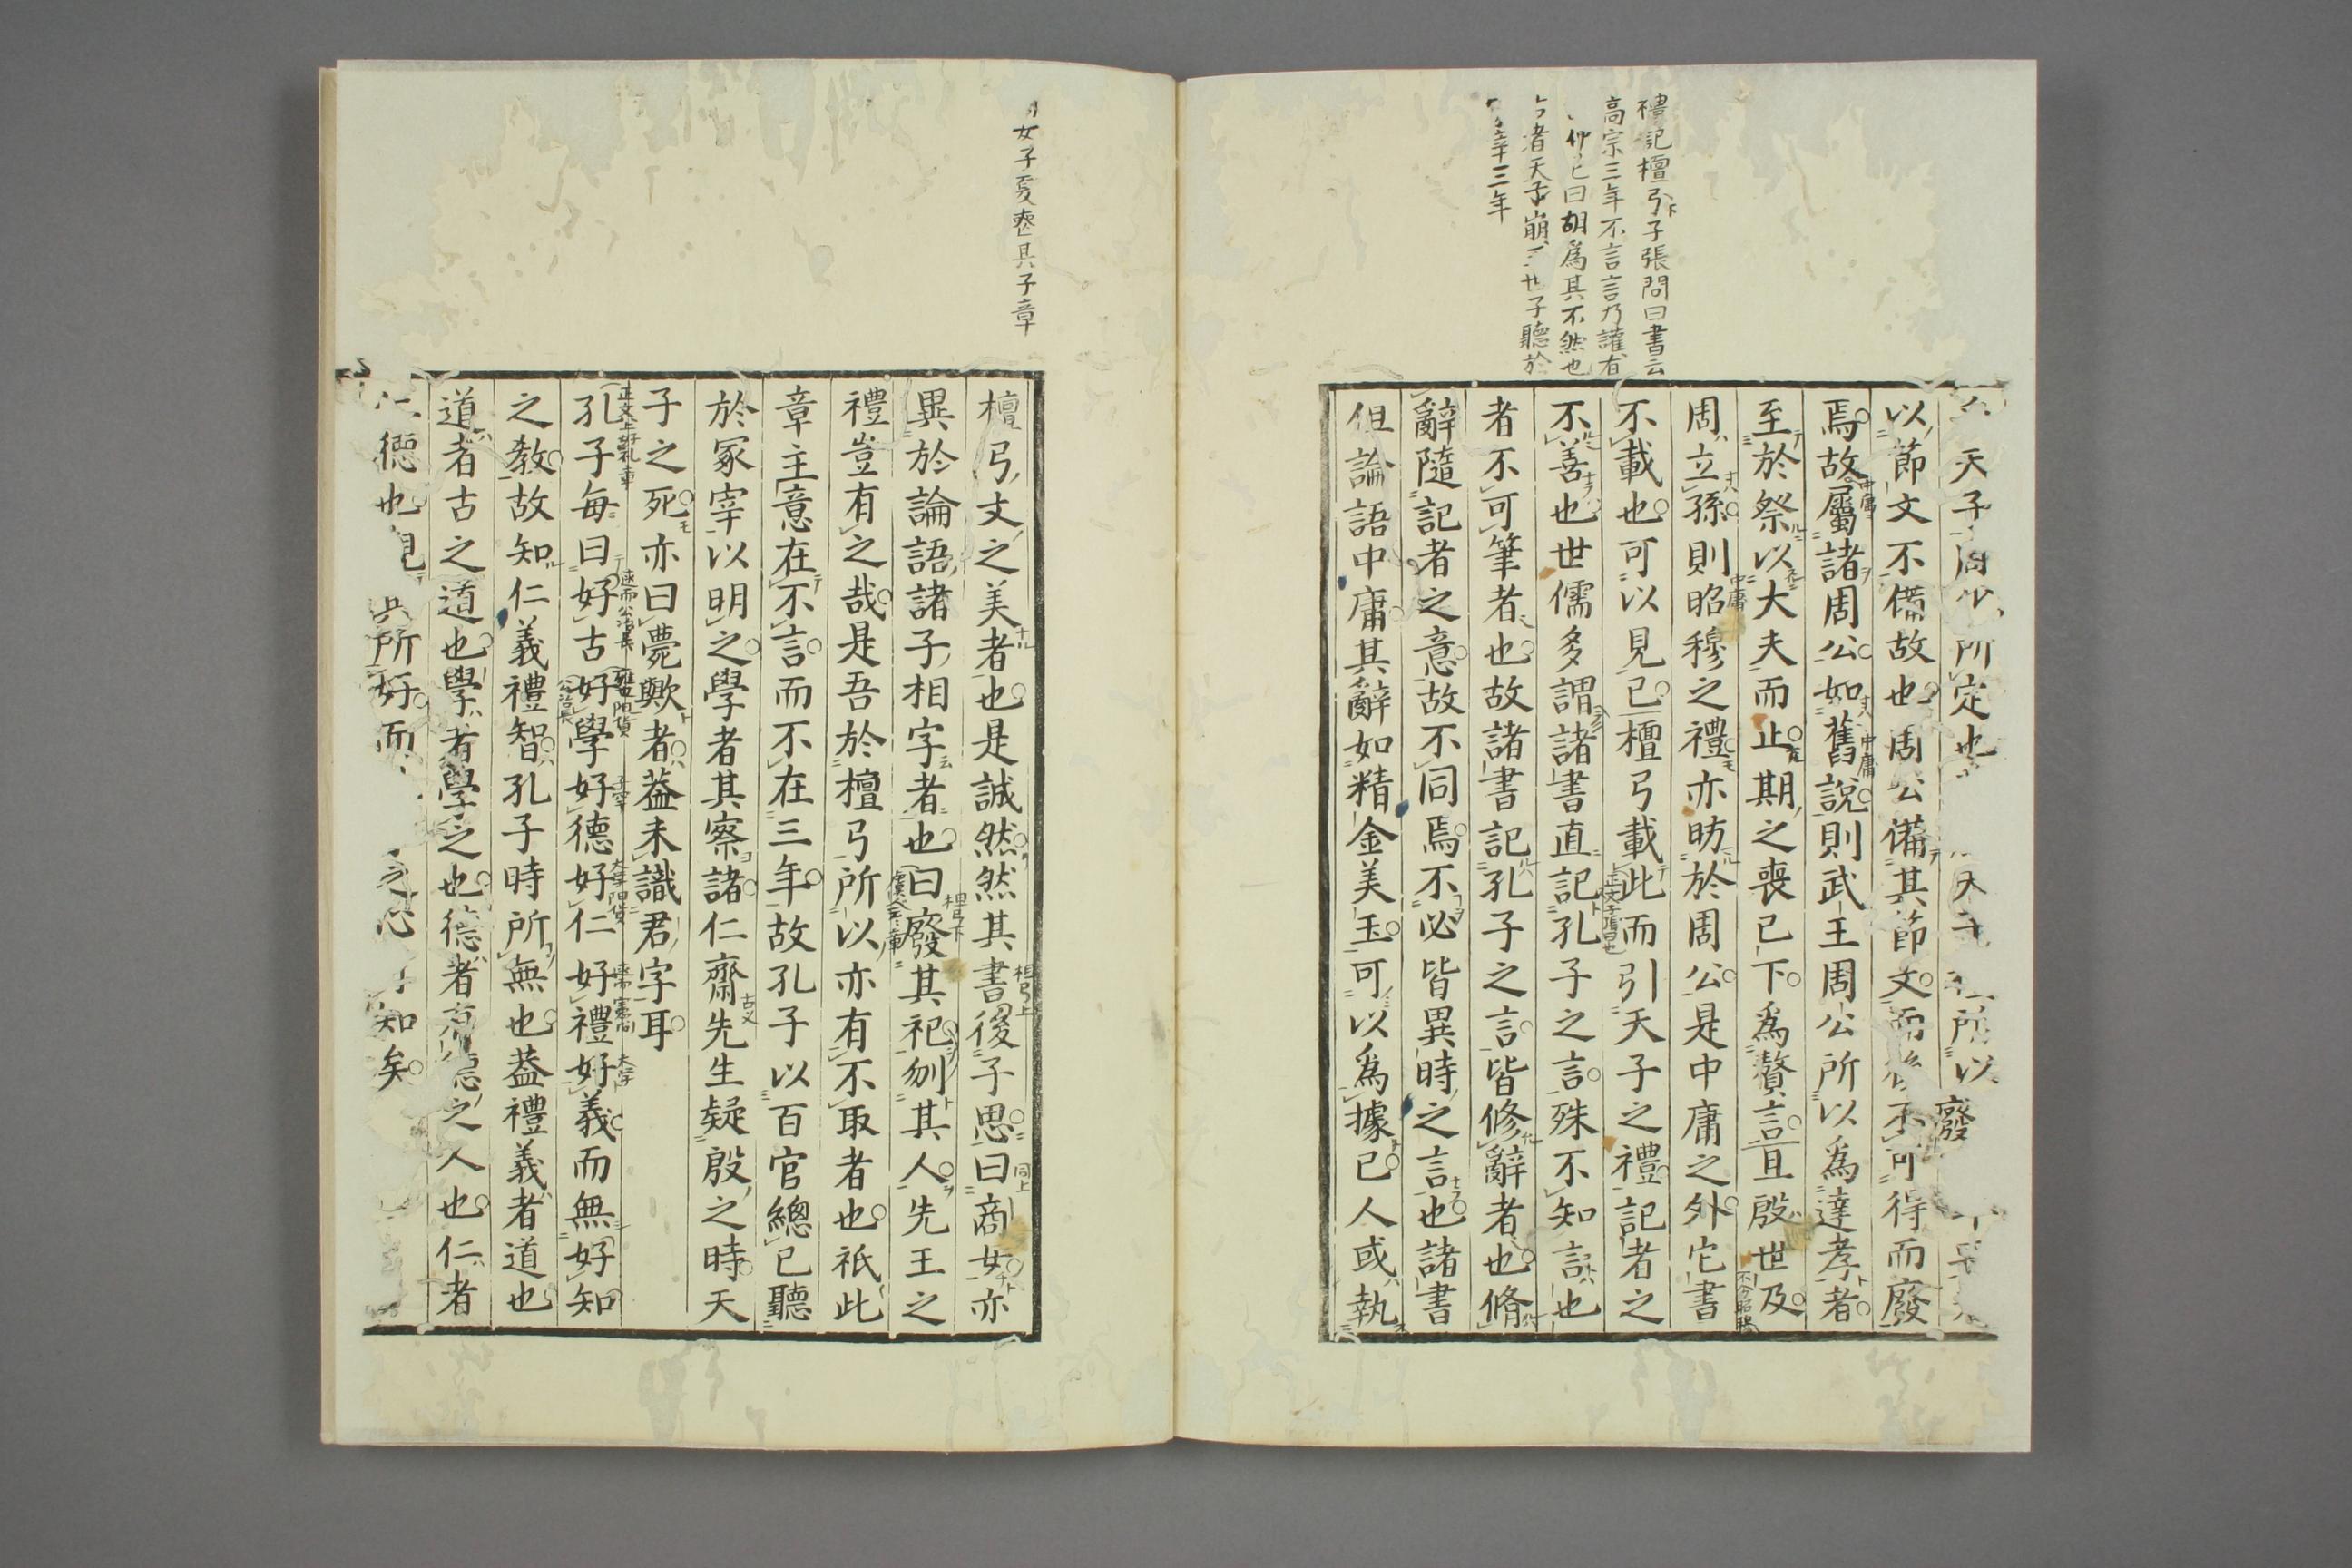 禮記檀弓下子張問曰書云
高宗三年不言言乃讙有
曰胡爲其不然也
者天子崩 也子聽於
宰三年
天子 所定也 所以廢
以節文不備故也周公備其節文而後不可得而廢
焉故屬諸周公如舊說則武王周公所以爲達孝者
至於祭以大夫而止期之喪已下爲贅言且殷世及
周立孫則昭穆之禮亦昉於周公是中庸之外它書
不載也可以見已檀弓載此而引天子之禮記者之
不善也世儒多謂諸書直記孔子之言殊不知言也
者不可筆者也故諸書記孔子之言皆修辭者也脩
辭隨記者之意故不同焉不必皆異時之言也諸書
但論語中庸其辭如精金美玉可以爲據已人或執
女子夏喪其子章
檀弓文之美者也是誠然然其書後子思曰商女亦
異於論語諸子相字者也曰廢其祀刎其人先王之
禮豈有之哉是吾於檀弓所以亦有不取者也祇此
章主意在不言而不在三年故孔子以百官總已聽
於冢宰以明之學者其察諸仁齋先生疑殷之時天
子之死亦曰薨歟者蓋未識君字耳
孔子每曰好古好學好德好仁好禮好義而無好知
之教故知仁義禮智孔子時所無也蓋禮義者道也
道者古之道也學者學之也德者有德之人也仁者
德也 所好而 知矣